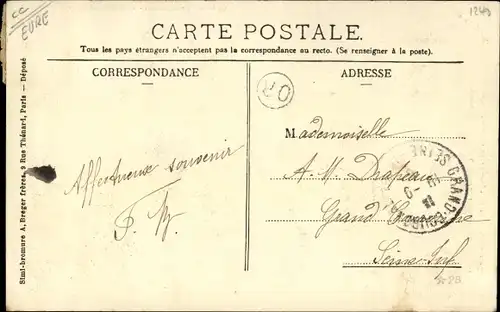 CC
EURE
1240
CARTE POSTALE.
Tous les pays étrangers n'acceptent pas la correspondance au recto. (Se renseigner à la poste).
CORRESPONDANCE
ADRESSE
OR
Affectueux souvenir
Mademoiselle
A. M. Drapeau
Grand
Seine-Inf
GRAND-COURONNE
SEINE
Simi-bromure A. Breger frères, 9 Rue Thénard, Paris — Déposé